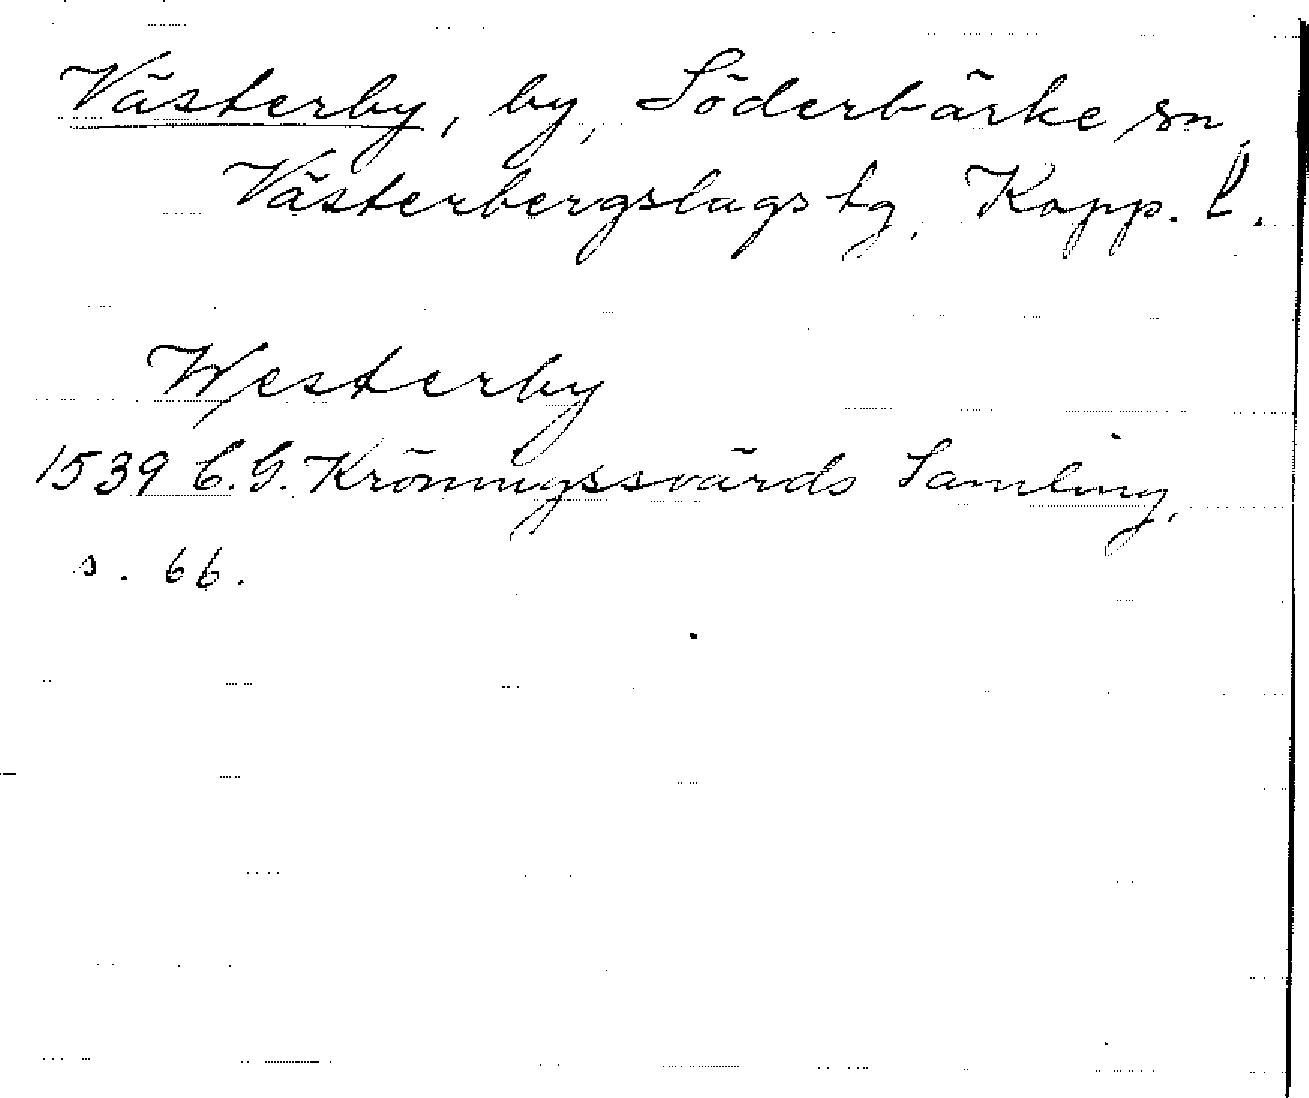 Västerby, by, Söderbärke sn,
Västerbergslags tg, Kopp. l.
Westerby
1539 C.G. Kröningssvärds Samling,
s. 66.